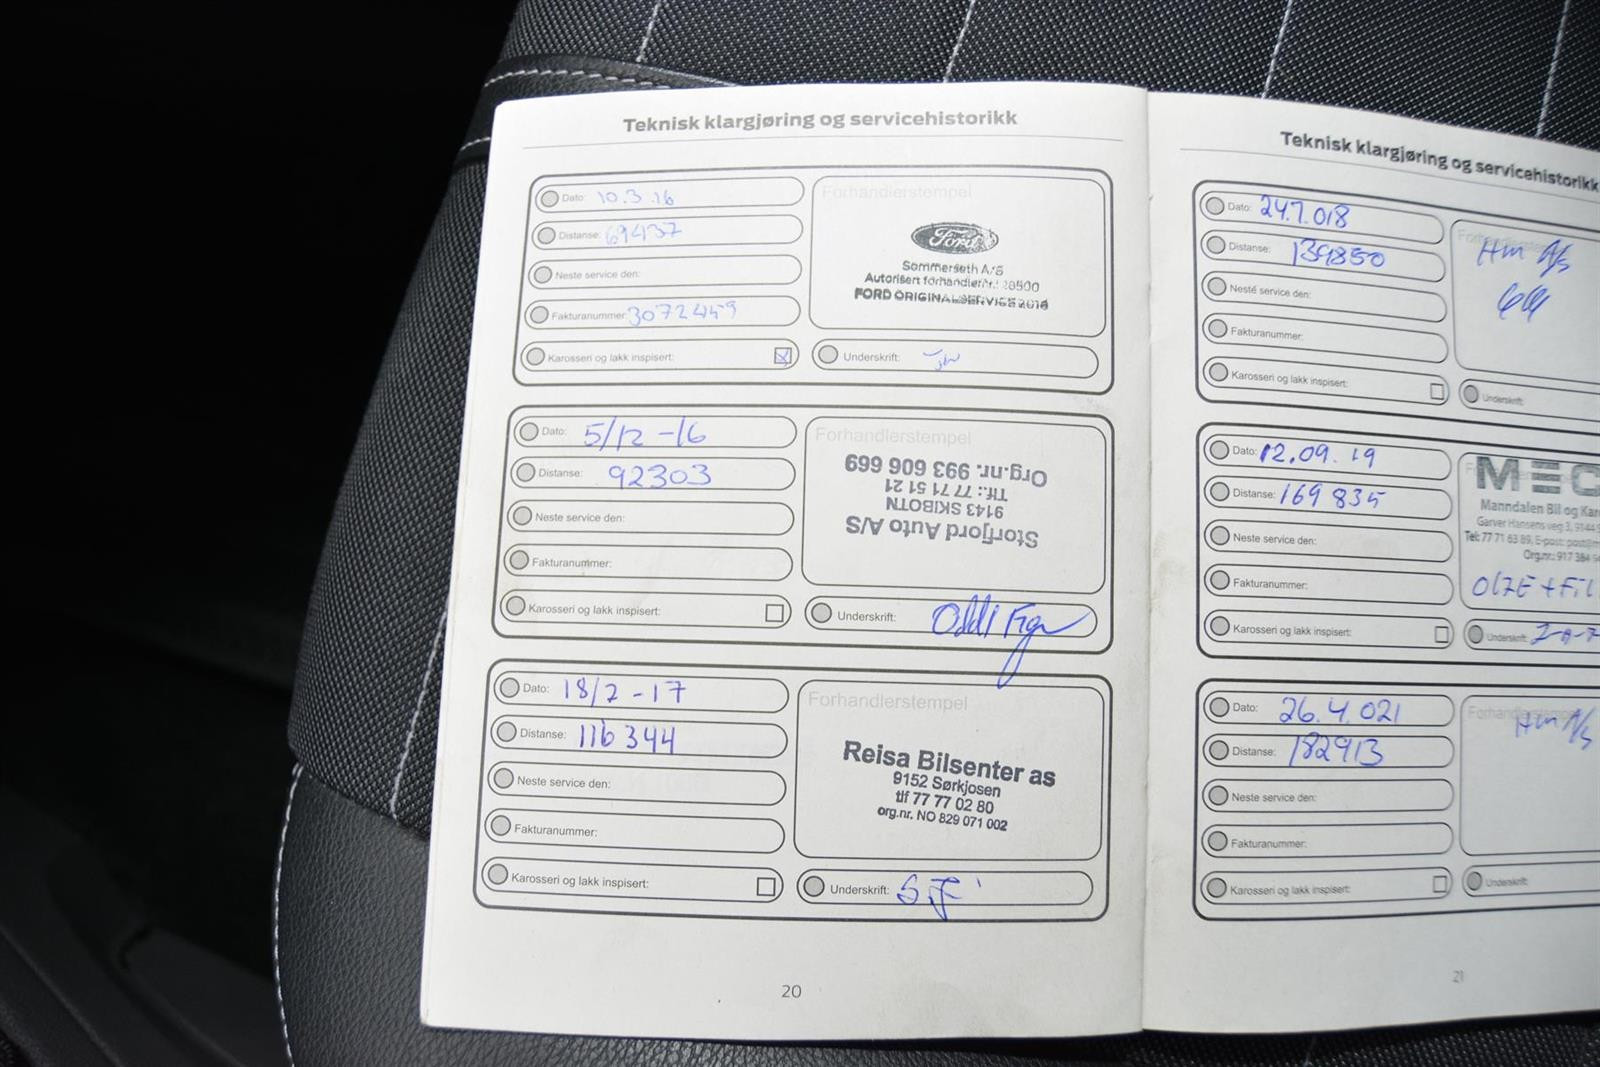 Teknisk klargjøring og servicehistorikk
Dato: 10.3.16
Distanse: 69437
Neste service den:
Fakturanummer: 3072459
Karosseri og lakk inspisert:
Forhandlerstempel
Ford
Sommerseth A/S
Autorisert forhandler
FORD ORIGINALSERVICE 2016
Underskrift:
Dato: 5/12-16
Distanse: 92303
Neste service den:
Fakturanummer:
Karosseri og lakk inspisert:
Forhandlerstempel
Storfjord Auto A/S
9143 SKIBOTN
Tlf.: 77 71 51 21
Org.nr. 993 606 669
Underskrift:
Dato: 18/2-17
Distanse: 116 344
Neste service den:
Fakturanummer:
Karosseri og lakk inspisert:
Forhandlerstempel
Reisa Bilsenter as
9152 Sørkjosen
tlf 77 77 02 80
org.nr. NO 829 071 002
Underskrift:
20
Teknisk klargjøring og servicehistorikk
Dato: 24.7.018
Distanse: 139850
Neste service den:
Fakturanummer:
Karosseri og lakk inspisert:
Hm A/s
Underskrift:
Dato: 12.09.19
Distanse: 169 835
Neste service den:
Fakturanummer:
Karosseri og lakk inspisert:
MEC
Manndalen Bil og Kar
Garver Hansens veg 3, 9144 S
Tel: 77 71 63 89, E-post: post@m
Org.nr.: 917 384
OLJE + FIL
Underskrift:
Dato: 26.4.021
Distanse: 182913
Neste service den:
Fakturanummer:
Karosseri og lakk inspisert:
Forhandlerstemp
Hm A/s
Underskrift:
21